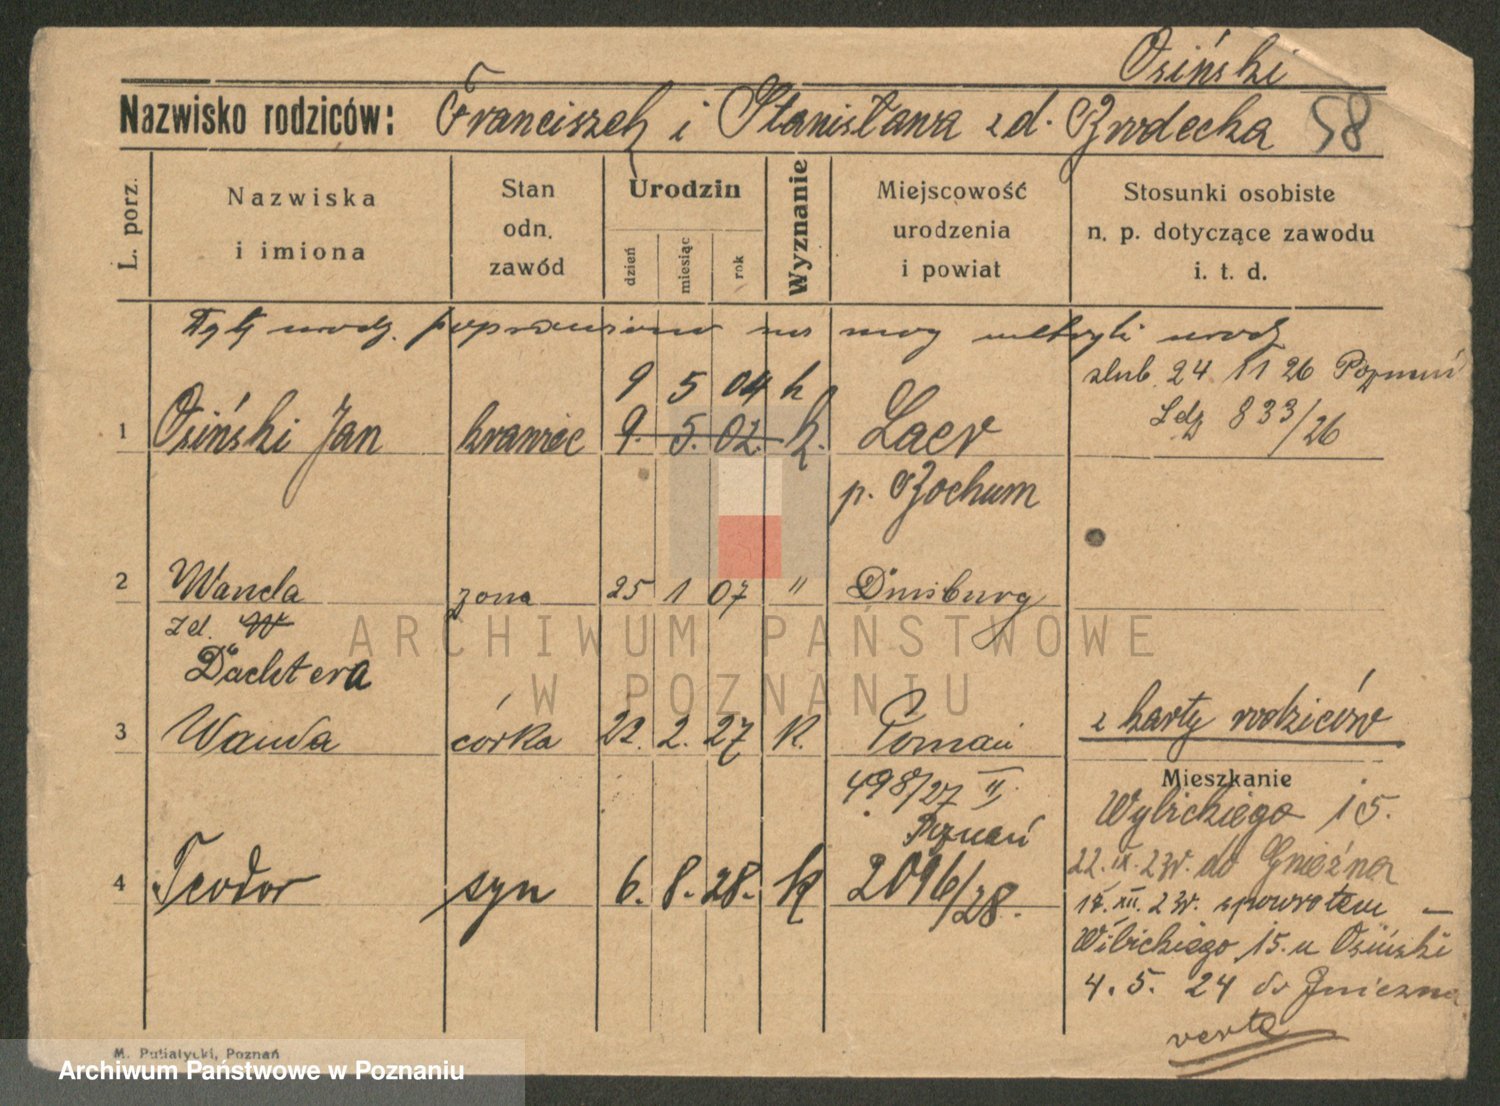 Osiński
Nazwisko rodziców: Franciszek i Stanisława z d. Brodecka 58
L. porz.
Nazwiska i imiona
Stan odn. zawód
Urodzin
dzień miesiąc rok
Wyznanie
Miejscowość urodzenia i powiat
Stosunki osobiste n. p. dotyczące zawodu i. t. d.
urodz. poprawiono na mocy metryki urodz
9 5 04 k
ślub 24 11 26 Poznań
Ldz 833/26
1 Osiński Jan krawiec 9. 5. 02. k. Laer
p. Bochum
2 Wanda żona 25 1 07 " Duisburg
z d. W
Dachtera
3 Wanda córka 22. 2. 27 k. Poznań
z karty rodziców
498/27 II
Mieszkanie
Wybickiego 15.
Poznań
4 Teodor syn 6. 8. 28. k 2096/28.
22. IX. 23r. do Gniezna
XII. 23r. spowrotem —
Wibickiego 15. u Osiński
4. 5. 24 do Gniezna
verte
M. Putiatycki, Poznań
ARCHIWUM PAŃSTWOWE
W POZNANIU
Archiwum Państwowe w Poznaniu